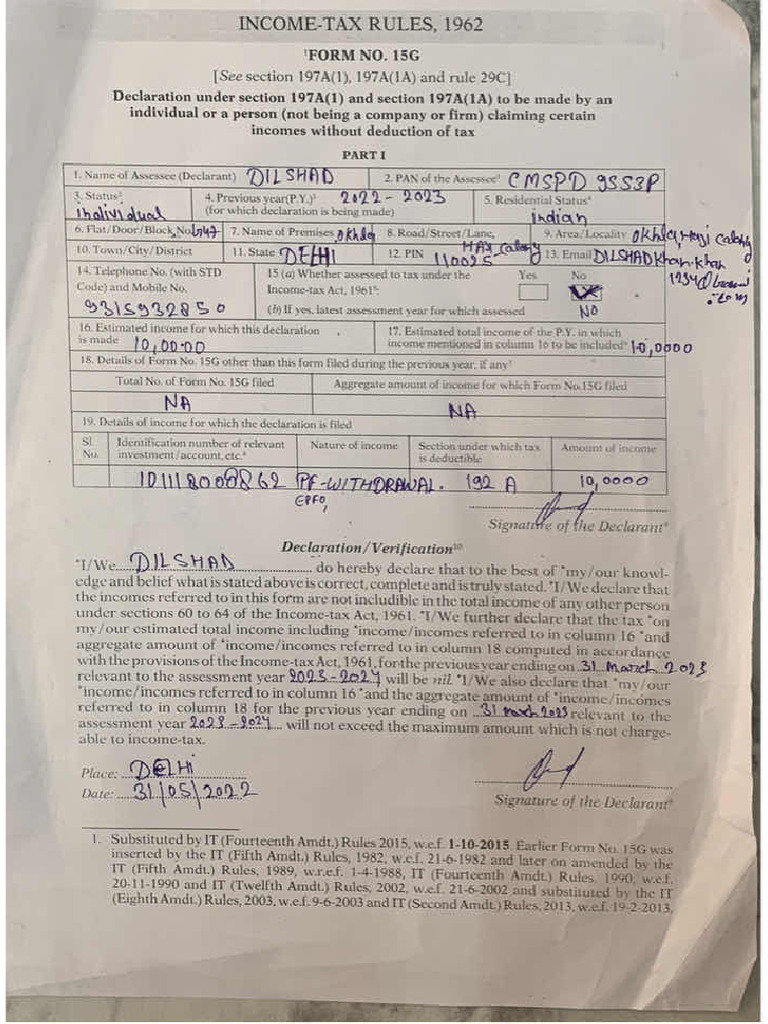 INCOME-TAX RULES, 1962
¹FORM NO. 15G
[See section 197A(1), 197A(1A) and rule 29C]
Declaration under section 197A(1) and section 197A(1A) to be made by an
individual or a person (not being a company or firm) claiming certain
incomes without deduction of tax
PART I
1. Name of Assessee (Declarant) DILSHAD 2. PAN of the Assessee² CMSPD 9553P
3. Status³ individual 4. Previous year(P.Y.)³ 2022-2023 5. Residential Status⁴
(for which declaration is being made) indian
6. Flat/Door/Block No. 7. Name of Premises okhla 8. Road/Street/Lane, 9. Area/Locality okhla, Haji Colony
10. Town/City/District 11. State DELHI 12. PIN 110025 13. Email
14. Telephone No. (with STD 15 (a) Whether assessed to tax under the Yes No
Code) and Mobile No. Income-tax Act, 1961⁵:
9315932850 (b) If yes, latest assessment year for which assessed NO
16. Estimated income for which this declaration 17. Estimated total income of the P.Y. in which
is made 10,00:00 income mentioned in column 16 to be included⁶ 10,0000
18. Details of Form No. 15G other than this form filed during the previous year, if any⁷
Total No. of Form No. 15G filed Aggregate amount of income for which Form No.15G filed
NA NA
19. Details of income for which the declaration is filed
Sl. Identification number of relevant Nature of income Section under which tax Amount of income
No. investment/account, etc.⁸ is deductible
101118000862 PF-WITHDRAWAL. 192 A 10,0000
EPFO,
Signature of the Declarant⁹
Declaration/Verification¹⁰
*I/We DILSHAD do hereby declare that to the best of *my/our knowl-
edge and belief what is stated above is correct, complete and is truly stated. *I/We declare that
the incomes referred to in this form are not includible in the total income of any other person
under sections 60 to 64 of the Income-tax Act, 1961. *I/We further declare that the tax *on
my/our estimated total income including *income/incomes referred to in column 16 *and
aggregate amount of *income/incomes referred to in column 18 computed in accordance
with the provisions of the Income-tax Act, 1961, for the previous year ending on 31 March 2023
relevant to the assessment year 2023-2024 will be nil. *I/We also declare that *my/our
*income/incomes referred to in column 16 *and the aggregate amount of *income/incomes
referred to in column 18 for the previous year ending on 31 march 2023 relevant to the
assessment year 2023-2024 will not exceed the maximum amount which is not charge-
able to income-tax.
Place: DELHI
Date: 31/05/2022 Signature of the Declarant⁹
1. Substituted by IT (Fourteenth Amdt.) Rules 2015, w.e.f. 1-10-2015. Earlier Form No. 15G was
inserted by the IT (Fifth Amdt.) Rules, 1982, w.e.f. 21-6-1982 and later on amended by the
IT (Fifth Amdt.) Rules, 1989, w.r.e.f. 1-4-1988, IT (Fourteenth Amdt.) Rules. 1990, w.e.f.
20-11-1990 and IT (Twelfth Amdt.) Rules, 2002, w.e.f. 21-6-2002 and substituted by the IT
(Eighth Amdt.) Rules, 2003, w.e.f. 9-6-2003 and IT (Second Amdt.) Rules, 2013, w.e.f. 19-2-2013.